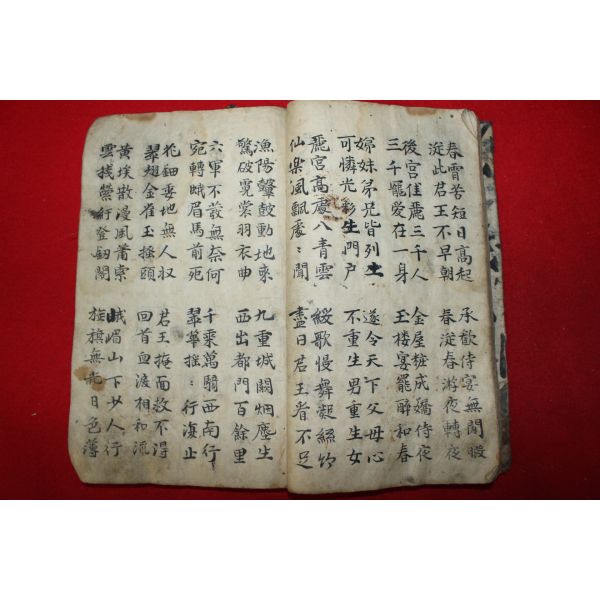 春霄苦短日高起
從此君王不早朝
承歡侍宴無閒暇
春從春游夜轉夜
後宮佳麗三千人
三千寵愛在一身
金屋粧成嬌侍夜
玉樓宴罷醉和春
姊妹弟兄皆列土
可憐光彩生門户
遂令天下父母心
不重生男重生女
驪宮高處入青雲
仙樂風飄處〻聞
緩歌慢舞凝絲竹
盡日君王看不足
漁陽鼙鼓動地來
驚破霓裳羽衣曲
九重城闕烟塵生
西出都門百餘里
六軍不發無奈何
宛轉蛾眉馬前死
千乘萬騎西南行
翠華搖〻行復止
花鈿委地無人収
翠翹金雀玉搔頭
君王掩面救不得
回首血淚相和流
黃埃散漫風蕭索
雲棧縈紆登釰閣
峨嵋山下少人行
旌旗無光日色薄